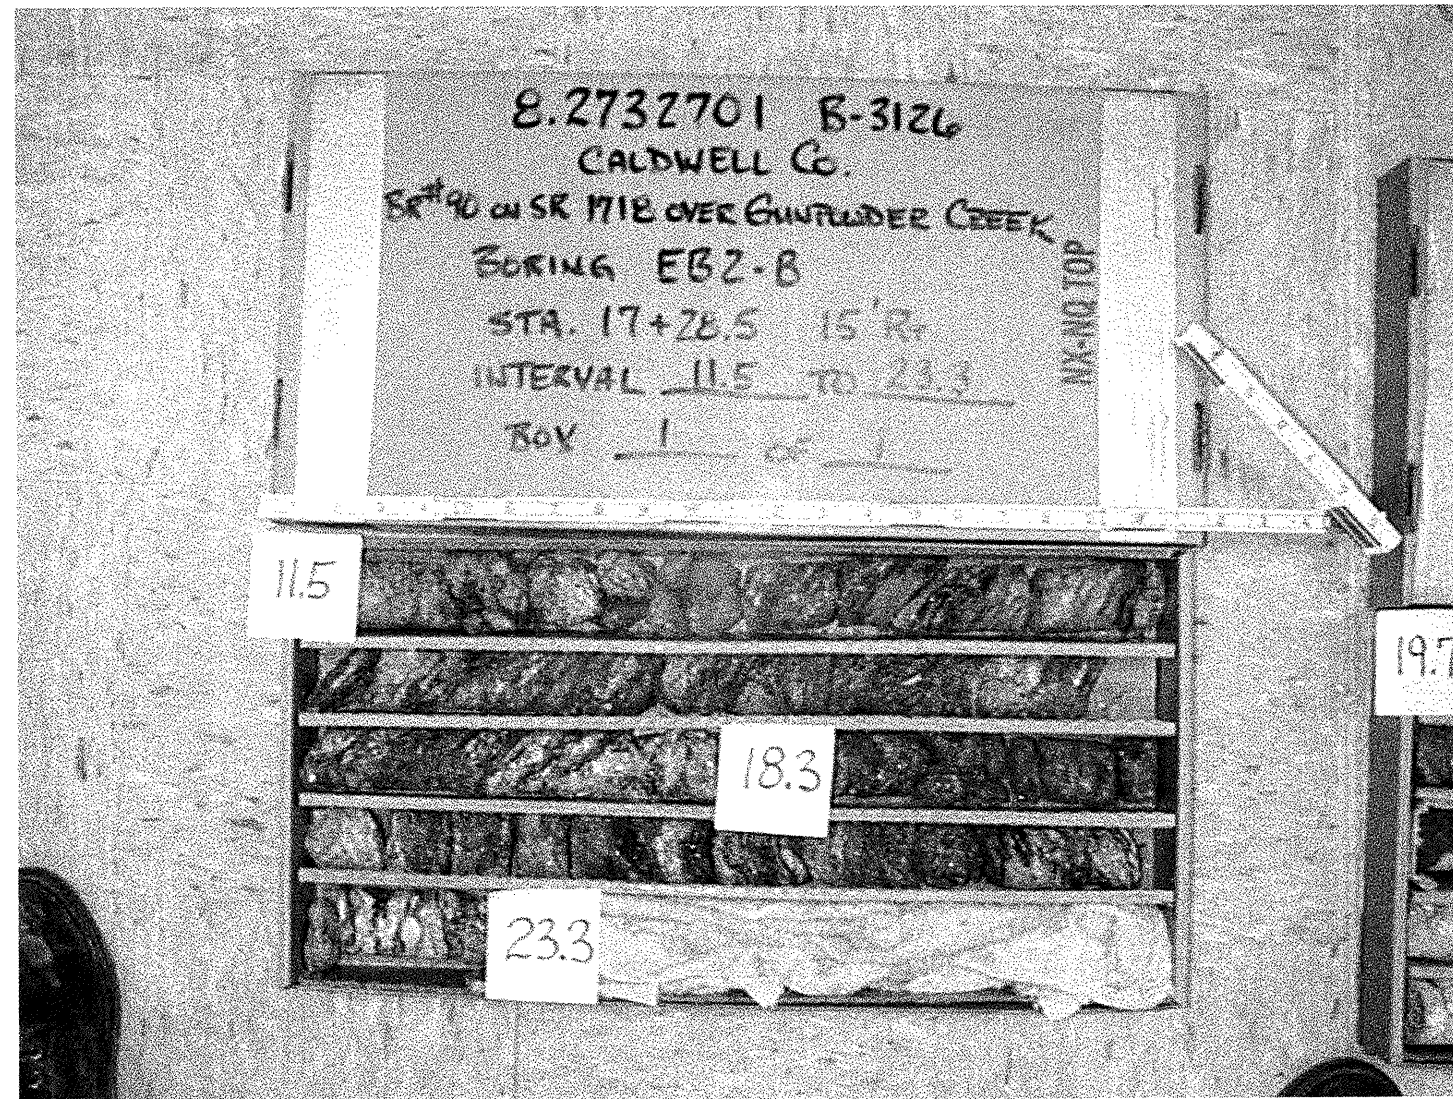 8.2732701 B-3126
CALDWELL CO.
BR#90 ON SR 1718 OVER GUNPOWDER CREEK
BORING EB2-B
STA. 17+28.5 15' RT
INTERVAL 11.5 TO 23.3
BOX 1 OF 1
NX-NQ TOP
11.5
19.7
18.3
23.3